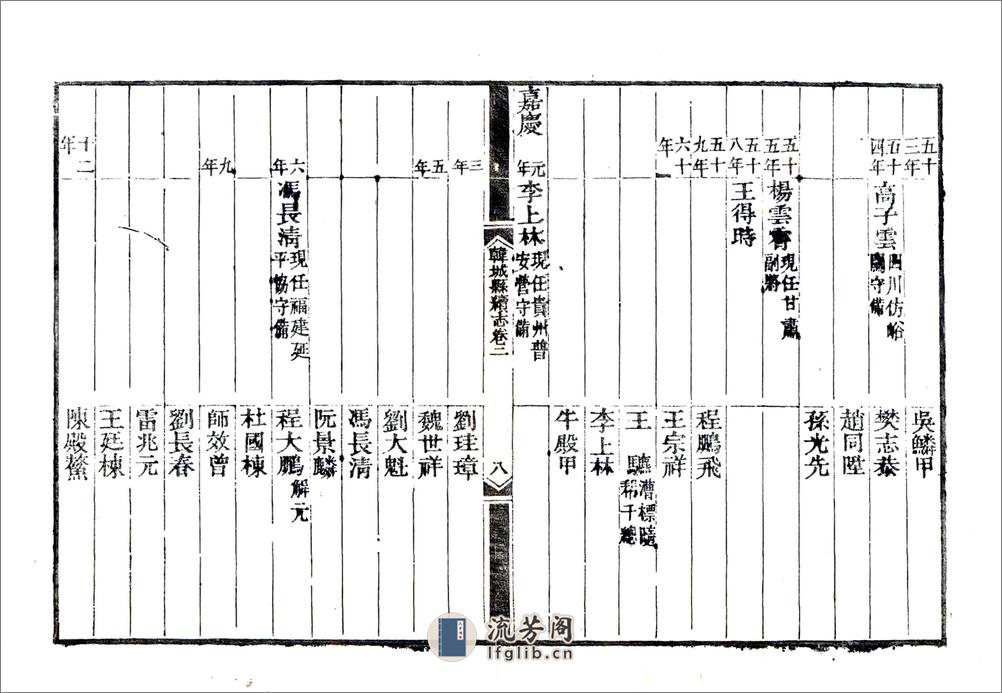 五十三年 吳鱗甲
五十四年 高子雲 四川仿峪關守備 樊志㳟
趙同陞
孫光先
五十五年 楊雲霄 現任甘肅副將
五十八年 王得時
五十九年 程鵬飛
六十年 王宗祥
王驌 漕標隨幇千總
李上林
牛殿甲
嘉慶元年 李上林 現任貴州普安營守備
韓城縣續志卷二
八
三年 劉珪璋
五年 魏世祥
劉大魁
馮長清
阮景麟
六年 馮長清 現任福建延平協守備 程大鵬 解元
杜國棟
九年 師效曾
劉長春
雷兆元
王廷棟
十二年 陳殿鰲
流芳阁
lfglib.cn